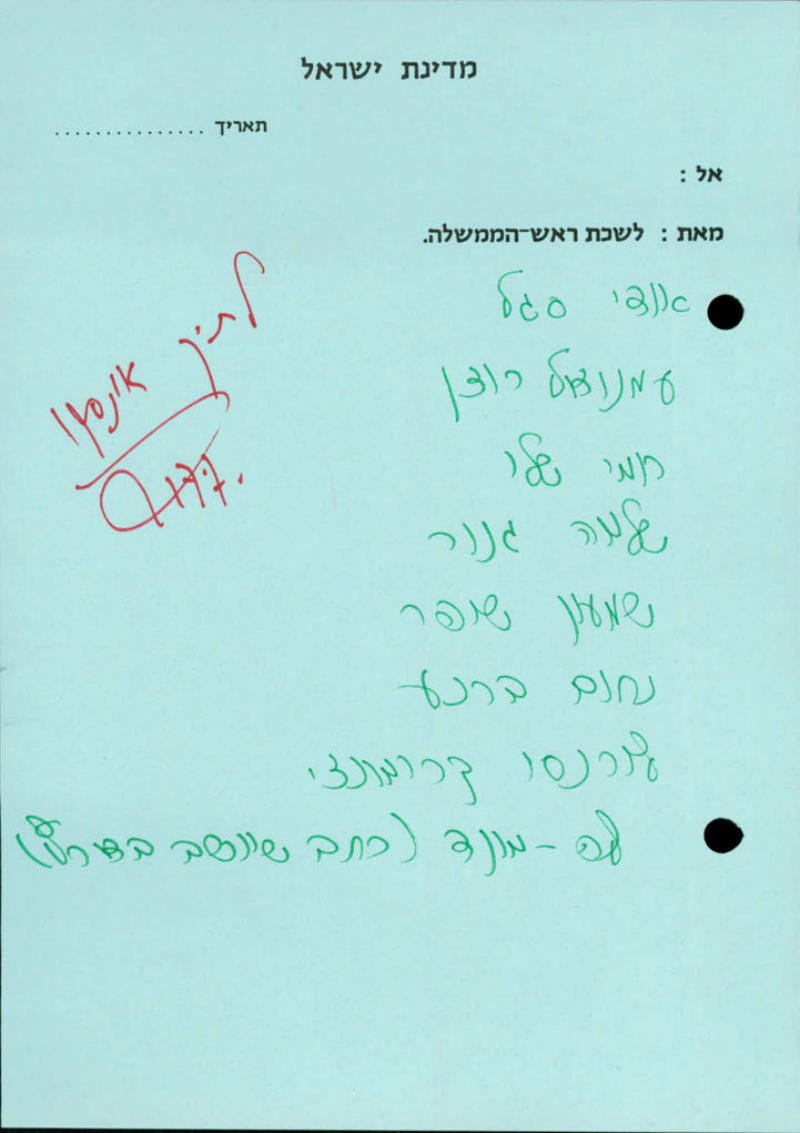 מדינת ישראל
תאריך ................
אל :
מאת : לשכת ראש-הממשלה.
לתיק
אודי סגל
עמנואל רוזן
חמי שלו
שלמה גנור
שמעון שיפר
נחום ברנע
לורנסו קרימונזי
לה-מונד (כתב שיושב בארץ)